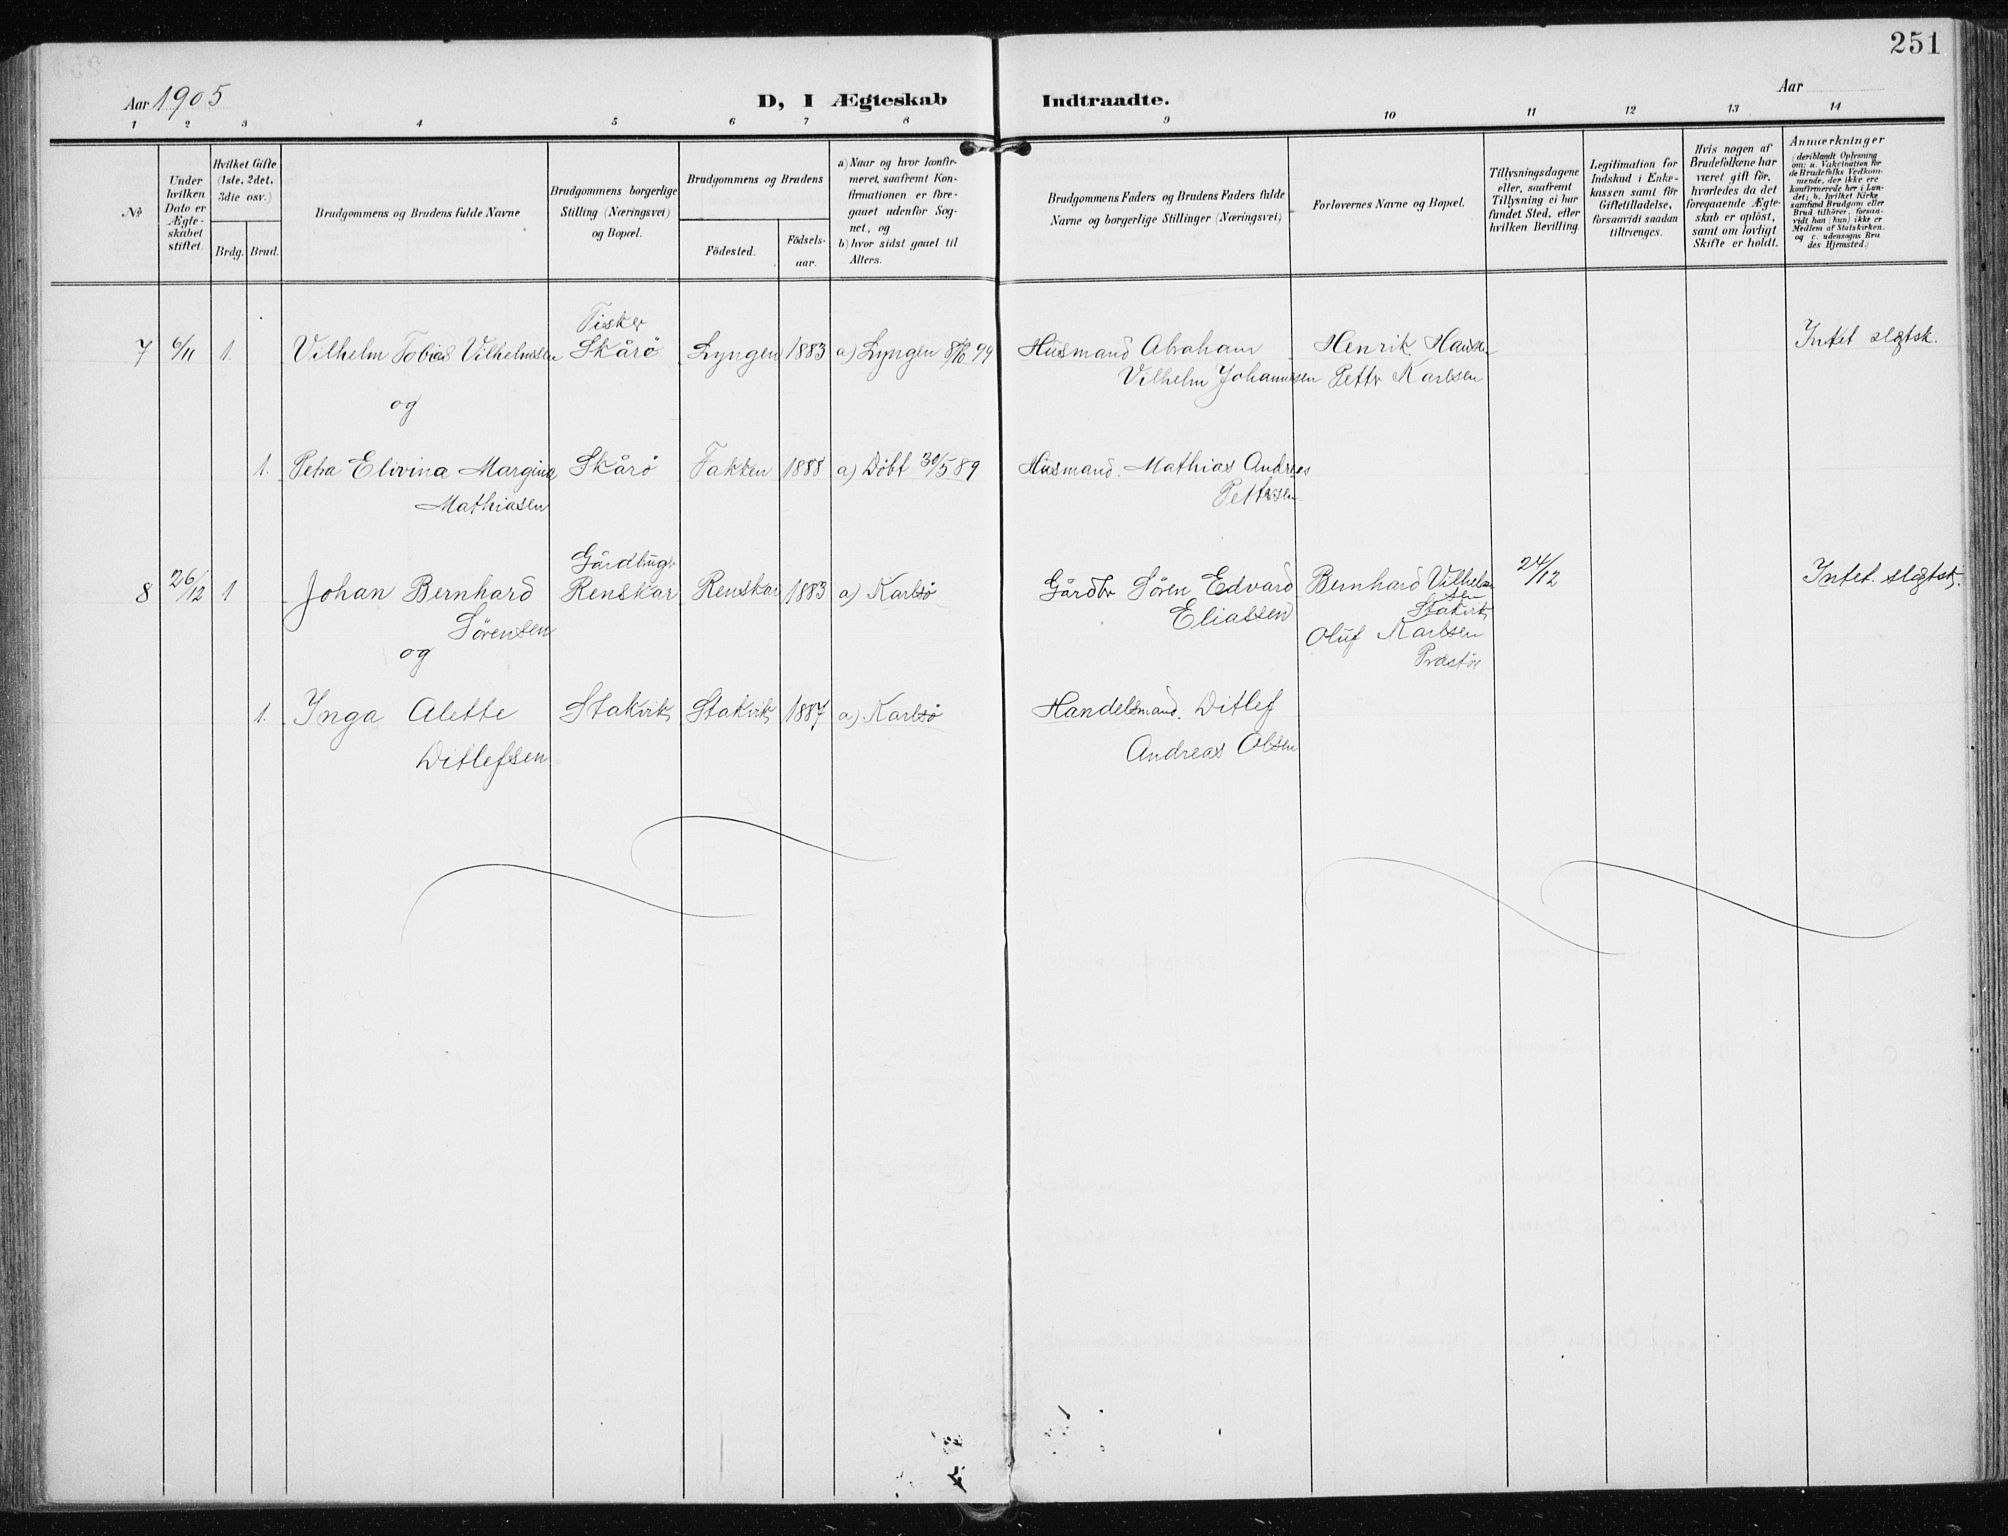 251
Aar 1905
D, I Ægteskab Indtraadte.
Aar
1 2 3 4 5 6 7 8 9 10 11 12 13 14
№
Under hvilken Dato er Ægteskabet stiftet.
Hvilket Gifte (1ste, 2det, 3die osv.)
Brdg. Brud.
Brudgommens og Brudens fulde Navne
Brudgommens borgerlige Stilling (Næringsvei) og Bopæl.
Brudgommens og Brudens
Födested. Födsels-aar.
a) Naar og hvor konfirmeret, saafremt Konfirmationen er foregaaet udenfor Sognet, og
b) hvor sidst gaaet til Alters.
Brudgommens Faders og Brudens Faders fulde Navne og borgerlige Stillinger (Næringsvei)
Forlovernes Navne og Bopæl.
Tillysningsdagene eller, saafremt Tillysning ei har fundet Sted, efter hvilken Bevilling.
Legitimation for Indskud i Enkekassen samt för Giftetilladelse, forsaavidt saadan tiltrænges.
Hvis nogen af Brudefolkene har været gift för, hvorledes da det foregaaende Ægteskab er oplöst, samt om lovligt Skifte er holdt.
Anmærkninger
(deriblandt Oplysning om: a. Vakcination for de Brudefolks Vedkommende, der ikke ere konfirmerede her i Landet; b. hvilket Kirkesamfund Brudgom eller Brud tilhörer, forsaavidt han (hun) ikke er Medlem af Statskirken. og c. udensogns Brudes Hjemsted.)
7 6/11 1. Vilhelm Tobias Vilhelmsen Fisker Skårö Lyngen 1883 a) Lyngen 8/10 99 Husmand Abraham Vilhelm Johannesen Henrik Hansen Petter Karlsen Intet slægtsk.
og
1. Petra Elivina Margina Mathiasen Skårö Fakken 1888 a) Döbt 30/5 89 Husmand. Mathias Andreas Pettersen
8 26/12 1 Johan Bernhard Sörensen Gårdbruger Renskar Renskar 1883 a) Karlsö Gårdbr Sören Edvard Eliassen Bernhard Vilhelmsen Stakvik Oluf Karlsen 24/12 Intet slægtsk.
og
1. Inga Alette Ditlefsen Stakvik Stakvik 1887 a) Karlsö Handelsmand. Ditlef Andreas Olsen